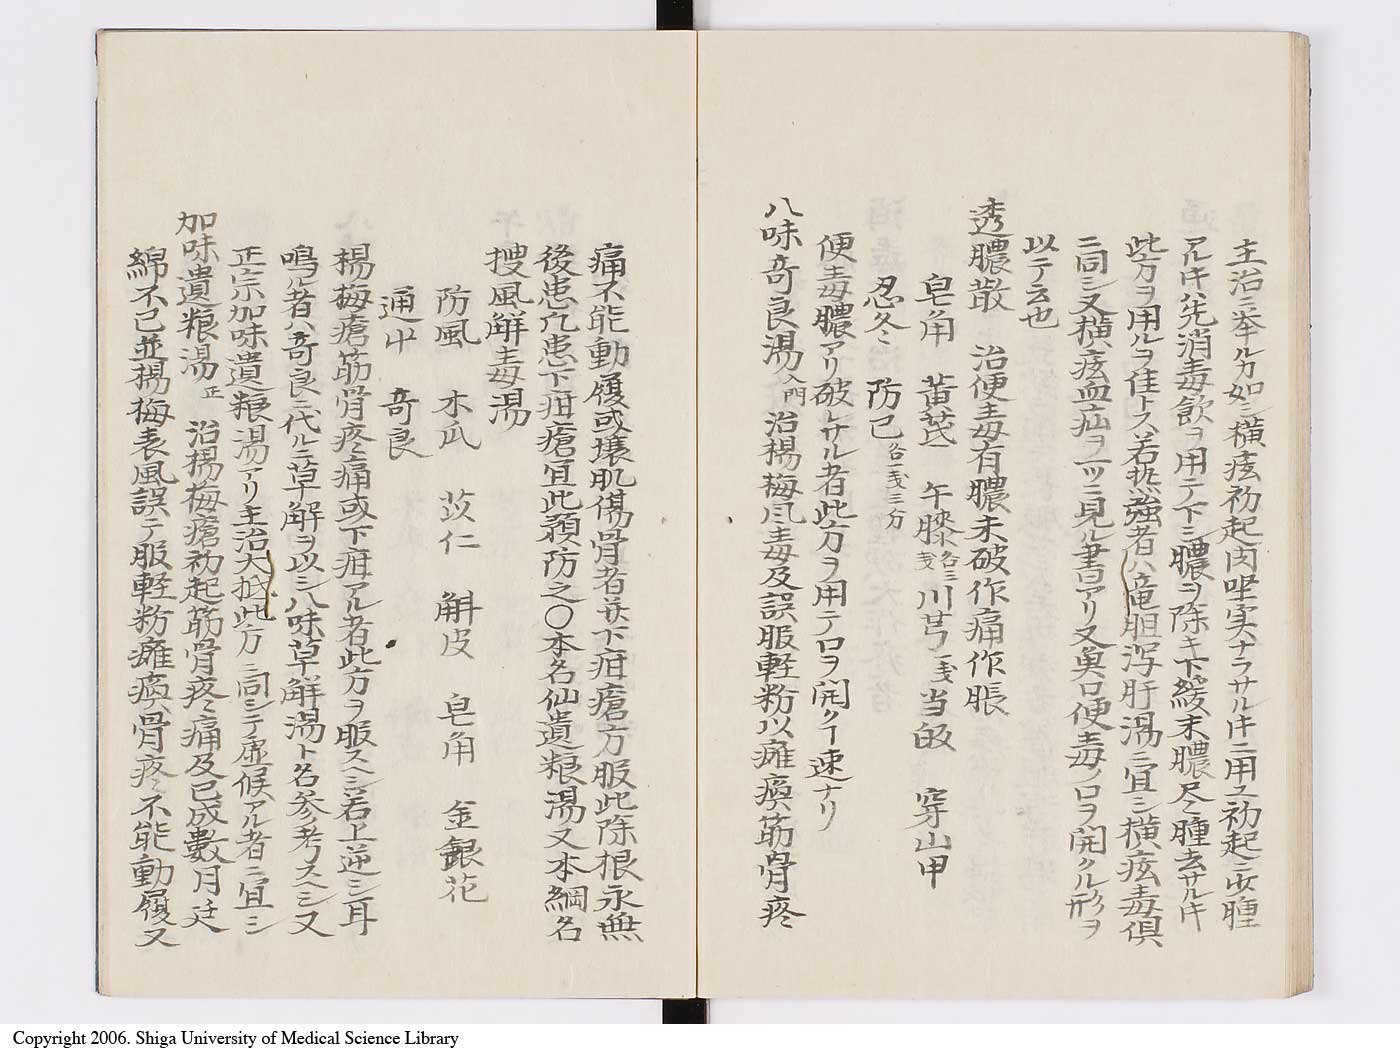 主治ニ挙ル力如ニ横痃初起肉堅実ナラサルキニ用ユ初起ニ出腫
アルキハ先消毒飲ヲ用テ下ニ膿ヲ除キ下緩末膿尽腫去サルキ
此方ヲ用ルヲ佳トス若熱強者ハ竜胆泻肝湯ニ宜シ横痃毒倶
ニ同シ又横痃血疝ヲ一ツニ見ル書アリ又魚口便毒ノ口ヲ開クル形ヲ
以テ云也
透膿散 治便毒有膿未破作痛作脹
皂角 黄芪 午膝各三戔川芎一戔当皈 穿山甲
忍冬 防已各一戔三分
便毒膿アリ破レサル者此方ヲ用テ口ヲ開クヿ速ナリ
八味奇良湯入門 治楊梅風毒及誤服軽粉以癱瘓筋骨疼
痛不能動履或壊肌傷骨者並下疳瘡方服此除根永無
後患凢患下疳瘡宜此預防之〇本名仙遺粮湯又本綱名
搜風解毒湯
防風 木瓜 苡仁 解皮 皂角 金銀花
通屮 奇良
楊梅瘡筋骨疼痛或下疳アル者此方ヲ服スヘシ若上逆シ耳
鳴ル者ハ奇良ニ代ルニ萆解ヲ以シ八味萆解湯ト名参考スヘシ又
正宗加味遺粮湯アリ主治大抵此方ニ同シテ虚候アル者ニ宜シ
加味遺粮湯正 治楊梅瘡初起筋骨疼痛及已成數月延
綿不已並楊梅表風誤テ服軽粉癱瘓骨疼不能動履又
Copyright 2006. Shiga University of Medical Science Library